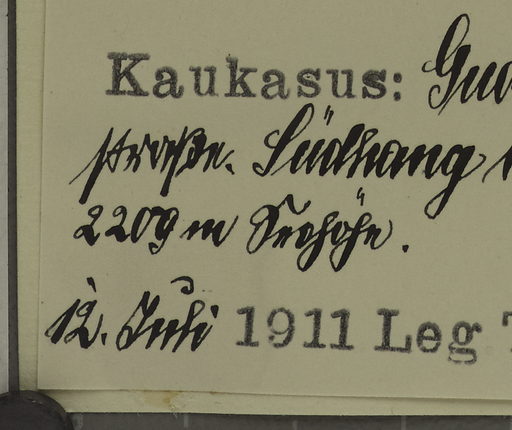 Kaukasus: Gu
straße. Südhang
2200 m Seehöhe.
12. Juli 1911 Leg